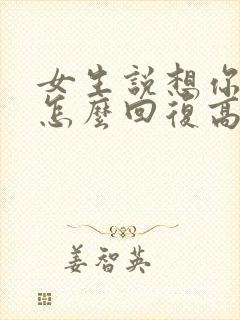 女生說想你
怎麼回復高
姜智英